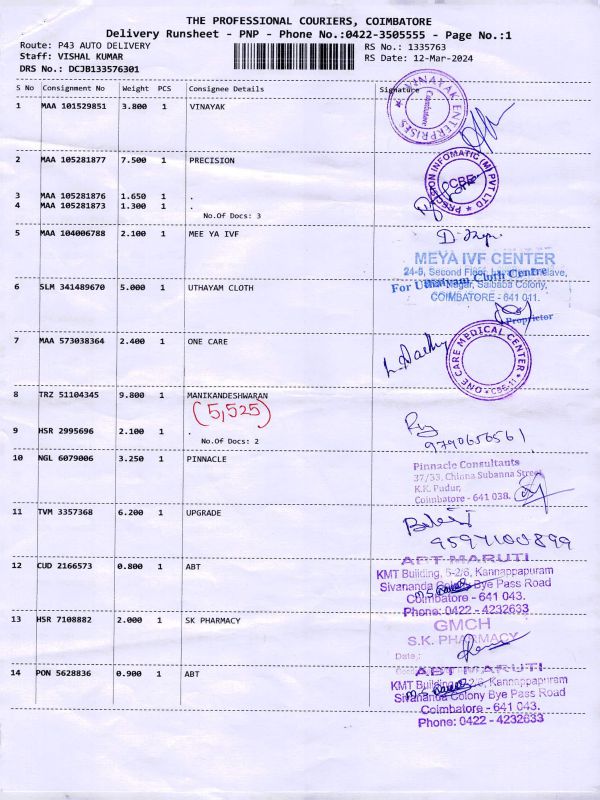 THE PROFESSIONAL COURIERS, COIMBATORE
Delivery Runsheet - PNP - Phone No.:0422-3505555 - Page No.:1
Route: P43 AUTO DELIVERY RS No.: 1335763
Staff: VISHAL KUMAR RS Date: 12-Mar-2024
DRS No.: DCJB133576301
S No Consignment No Weight PCS Consignee Details Signature
1 MAA 101529851 3.800 1 VINAYAK
VINAYAK ENTERPRISES
Coimbatore
2 MAA 105281877 7.500 1 PRECISION
PRECISION INFOMATIC (M) PVT LTD
CBE
3 MAA 105281876 1.650 1 .
4 MAA 105281873 1.300 1 .
No.Of Docs: 3
5 MAA 104006788 2.100 1 MEE YA IVF
MEYA IVF CENTER
24-6, Second Floor,
Nagar, Saibaba Colony,
COIMBATORE - 641 011.
6 SLM 341489670 5.000 1 UTHAYAM CLOTH
For Uthayam Cloth Centre
Proprietor
7 MAA 573038364 2.400 1 ONE CARE
ONE CARE MEDICAL CENTER
CBE-11
8 TRZ 51104345 9.800 1 MANIKANDESHWARAN
(5,525)
9 HSR 2995696 2.100 1 .
No.Of Docs: 2
9790656561
10 NGL 6079006 3.250 1 PINNACLE
Pinnacle Consultants
37/33, Chinna Subanna Street,
K.K. Pudur,
Coimbatore - 641 038.
11 TVM 3357368 6.200 1 UPGRADE
9597100899
12 CUD 2166573 0.800 1 ABT
ABT MARUTI
KMT Building, 5-2/6, Kannappapuram
Sivananda Colony Bye Pass Road
Coimbatore - 641 043.
Phone: 0422 - 4232633
13 HSR 7108882 2.000 1 SK PHARMACY
GMCH
S.K. PHARMACY
Date :
14 PON 5628836 0.900 1 ABT
ABT MARUTI
KMT Building, 5-2/6, Kannappapuram
Sivananda Colony Bye Pass Road
Coimbatore - 641 043.
Phone: 0422 - 4232633